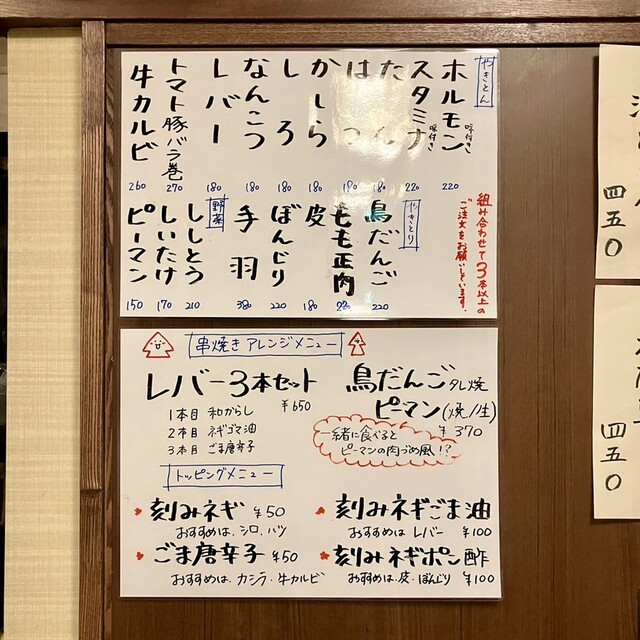 やきとん
ホルモン 味付き 220
スタミナ 味付き 220
たん 180
はつ 180
かしら 180
しろ 180
なんこつ 180
レバー 180
トマト豚バラ巻 270
牛カルビ 260
組み合わせて3本以上の
ご注文をお願いしています。
やきとり
鳥だんご 220
もも正肉
皮 180
ぼんじり 220
手羽 380
野菜
ししとう 210
しいたけ 170
ピーマン 150
串焼きアレンジメニュー
レバー3本セット
¥650
1本目 和からし
2本目 ネギゴマ油
3本目 ごま唐辛子
鳥だんごタレ焼
ピーマン(焼/生)
¥370
一緒に食べると
ピーマンの肉づめ風!?
トッピングメニュー
刻みネギ ¥50
おすすめは、シロ、ハツ
ごま唐辛子 ¥50
おすすめは、カシラ・牛カルビ
刻みネギごま油
おすすめは レバー ¥100
刻みネギポン酢
おすすめは、皮・ぼんじり ¥100
四五〇
四五〇